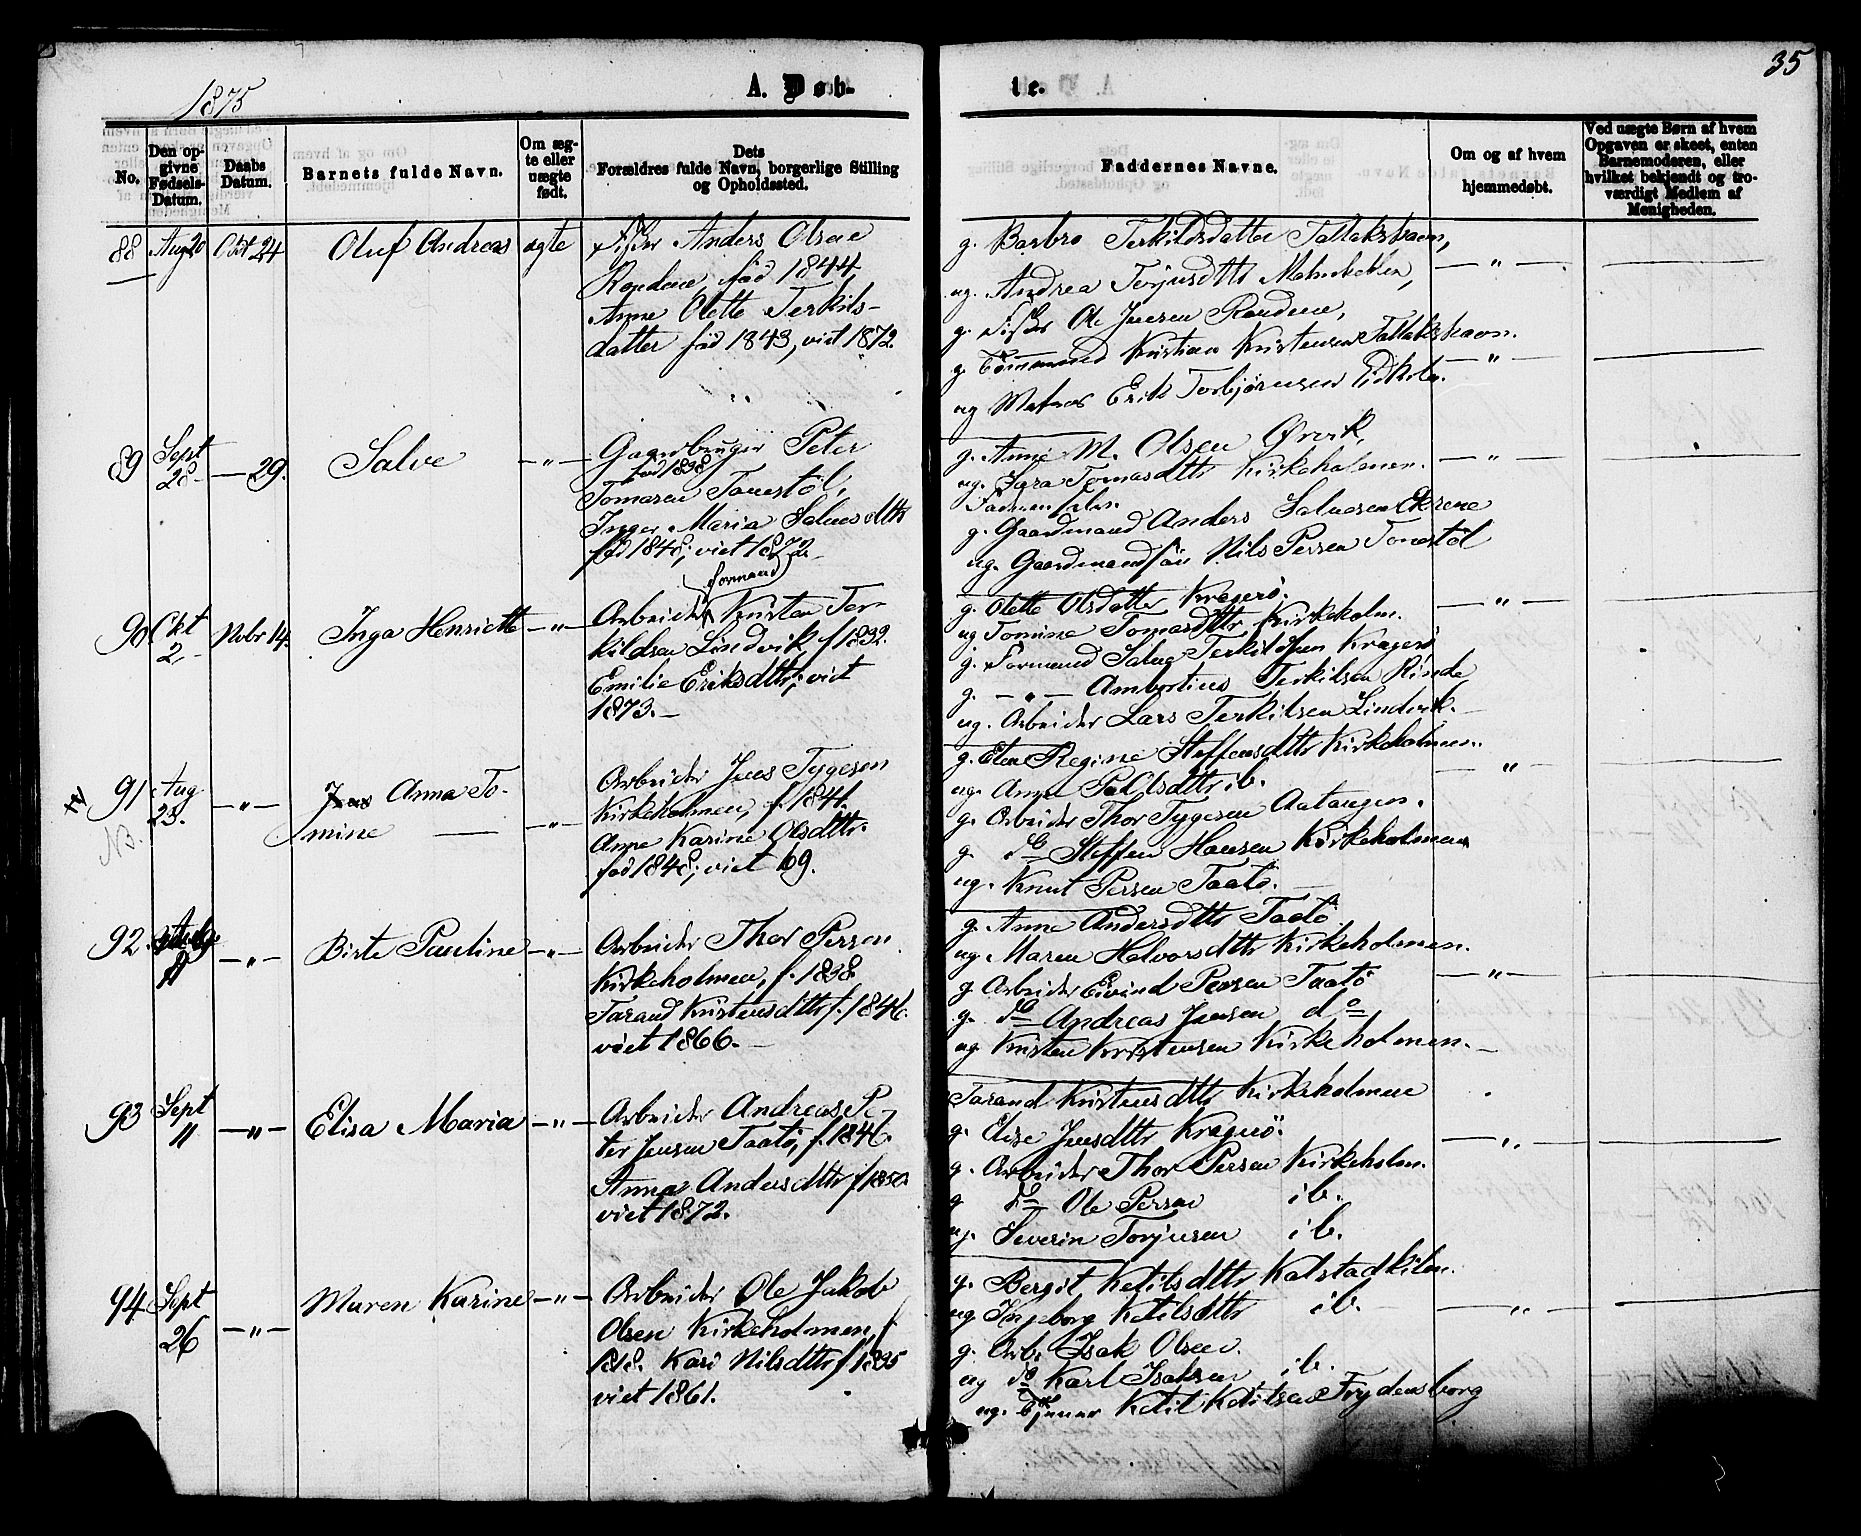 1875
A. Døbte.
35
No.
Den opgivne Fødsels-Datum.
Daabs Datum.
Barnets fulde Navn.
Om ægte eller uægte født.
Dets Forældres fulde Navn, borgerlige Stilling og Opholdssted.
Faddernes Navne.
Om og af hvem hjemmedøbt.
Ved uægte Børn af hvem Opgaven er skeet, enten Barnemoderen, eller hvilket bekjendt og troværdigt Medlem af Menigheden.
88 Aug 20 Okt 24 Oluf Andreas ægte
Fisker Anders Olsen
fød 1844,
Anne Olette Terkils-
datter fød 1843, viet 1872.
g. Barbro Terkildsdatter
ug. Andrea Terjusdttr
g. Fisker Ole Jensen
g. Kristian Kristensen
ug Matros Erik Torbjørnsen
— " —
89 Sept 28 — 29. Salve — " —
Gaardbruger Peter
fød 1838
Tomasen Tonestøl,
Inger Maria Salvesdttr
fød 1848, viet 1872.
g. Anne M. Olsen Ørvik,
ug. Sara Tomasdttr Kirkeholmen.
Faderen selv.
g. Gaardmand Anders Salvesen Ekrene
ug. Gaardmandsøn Nils Persen Tonestøl
— " —
90 Okt 2 Novbr 14. Inga Henriette — " —
formand
Arbeider Kristen Ter-
kildsen Lindvik, f. 1832.
Emilie Eriksdttr, viet
1873. —
g. Olette Olsdatter Kragerø.
ug Tomine Tomasdttr Kirkeholm.
g. Formand Salve Terkildsen Kragerø
g. — " — Ambortius Terkilsen Rinde,
ug. Arbeider Lars Terkilsen Lindvik.
— " —
91 Aug 23. — " — Jens Anna To-
mine — " —
NB.
Arbeider Jens Tygesen
Kirkeholmen, f. 1841.
Anne Karine Olsdttr.
fød 1848, viet 69.
g. Elen Regine Steffensdttr Kirkeholmen.
ug. Anne ib.
g. Arbeider Thor Tygesen Aatangen.
g do Steffen Hansen Kirkeholmen
ug. Knut Persen Taatø.
— " —
92. Aug. — " — Birte Pauline — " —
Arbeider Thor Persen
Kirkeholmen, f. 1838
Tarand Kristensdttr f. 1846.
viet 1866. —
g. Anne Andersdttr Taatø
ug Maren Halvorsdttr Kirkeholmen.
g. Arbeider Eivind Persen Taatø
g. do Andreas Jensen do
ug Kristen Kristensen Kirkeholmen.
— " —
93 Sept 11 — " — Elisa Maria — " —
Arbeider Andreas Pe-
ter Jensen Taatø, f. 1846.
Anna Andersdttr f 1850
viet 1872.
Tarand Kristensdttr Kirkeholmen
g. Elise Jensdttr Kragerø.
g. Arbeider Thor Persen Kirkeholm.
g do Ole Persen ib.
ug. Severin Torjusen ib.
— " —
94 Sept 26 — " — Maren Karine — " —
Arbeider Ole Jakob
Olsen Kirkeholmen, f
1818. Kari Nilsdttr f 1835
viet 1861.
g. Bergit Ketilsdttr Kalstadkilen.
ug Ingeborg Ketilsdttr ib.
g. Arb. Isak Olsen.
ug do Karl Isaksen ib.
ug. Tjener Ketil Ketilsen Frydensborg
— " —